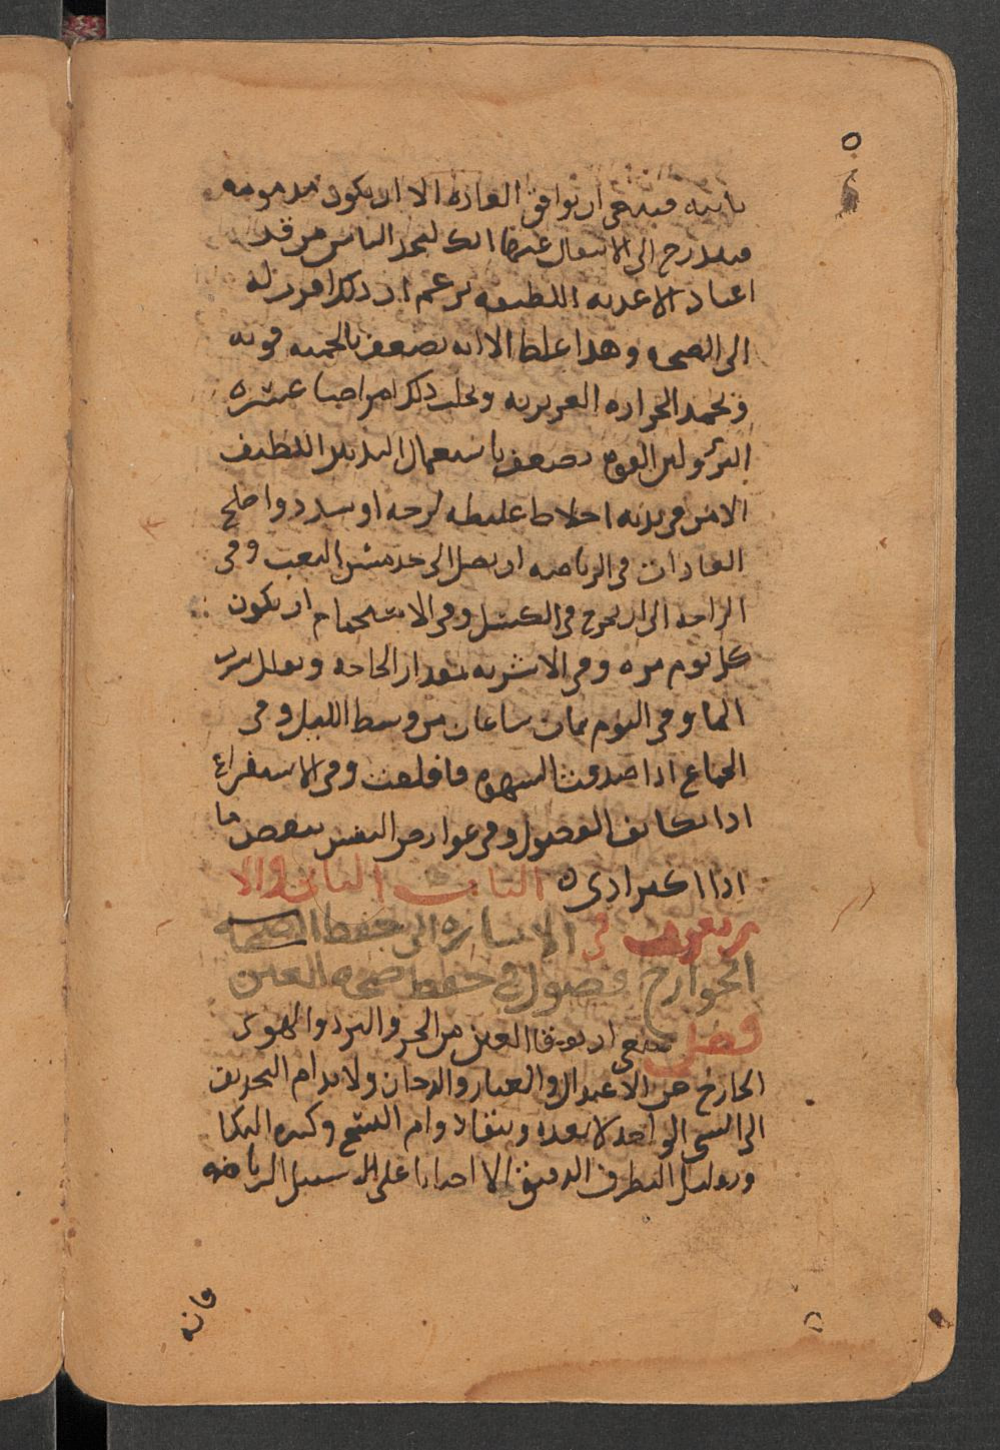 ثانيه فينبغى ان توافق العاده الا ان يكون مذمومه
فيتدرج الى الانتقال عنها
اعتاد الاغذيه اللطيفه يزعم ان ذلك اقرب له
الى الصحه وهذا غلط الا انه تضعف بالحميه قوته
وتخمد الحراره الغريزيه ويجلب ذلك امراضا عسره
البرؤ وليس القوه تضعف باستعمال التدبير اللطيف
الا من فى بدنه اخلاط غليظه لزجه او سدد واصلح
العادات فى الرياضه ان يصل الى حد التعب وفى
الراحه الى ان يخرج فى الكسل وفى الاستحمام ان يكون
كل يوم مره وفى الاشربه بمقدار الحاجه
الما وفى النوم ثمان ساعات من وسط الليل وفى
الجماع اذا صدقت الشهوه فاقلعت وفى الاستفراغ
اذا تكاثف الفضول وفى عوارض النفس بنقص ما
اذا كثر اذى ه الباب الثانى والا
ربعون فى الاشاره الى حفظ الصحه
الجوارح فصول فى حفظ صحه العين
فصل ينبغى ان يوقا العين من الحر والبرد والهوى
الخارج عن الاعتدال والغبار والدخان ولا يدام التحديق
الى الشى الواحد لا يعده ويتقا دوام الشبع وكثره البكا
النظر فى الدقيق الا احيانا على سبيل الرياضه
فانه